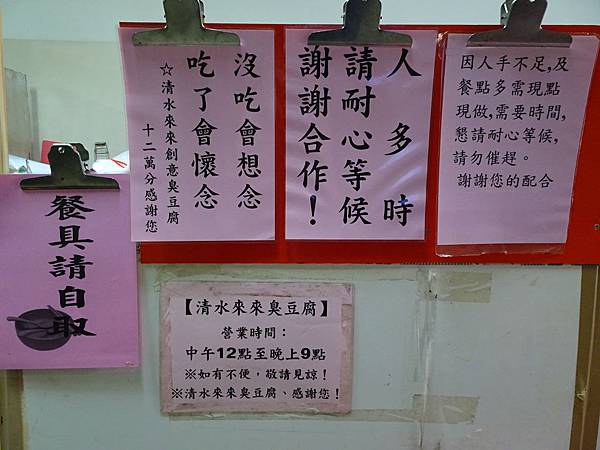 餐具請自取
沒吃會想念
吃了會懷念
☆清水來來創意臭豆腐
十二萬分感謝您
人多時
請耐心等候
謝謝合作！
因人手不足,及
餐點多需現點
現做,需要時間,
懇請耐心等候,
請勿催趕。
謝謝您的配合
【清水來來臭豆腐】
營業時間：
中午12點至晚上9點
※如有不便，敬請見諒！
※清水來來臭豆腐、感謝您！